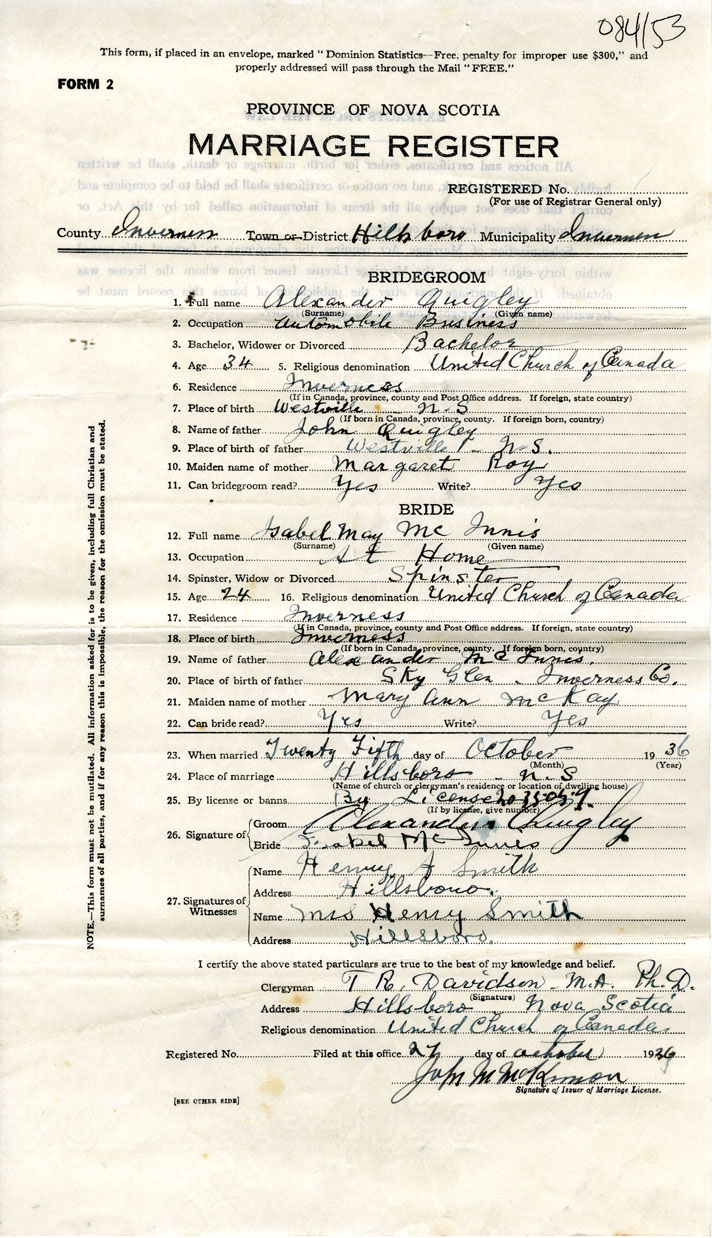 084153
This form, if placed in an envelope, marked "Dominion Statistics—Free, penalty for improper use $300," and
properly addressed will pass through the Mail "FREE."
FORM 2
PROVINCE OF NOVA SCOTIA
MARRIAGE REGISTER
REGISTERED No.
(For use of Registrar General only)
County Inverness Town or District Hillsboro Municipality Inverness
BRIDEGROOM
1. Full name Alexander Quigley
(Surname) (Given name)
2. Occupation Automobile Business
3. Bachelor, Widower or Divorced Bachelor
4. Age 34 5. Religious denomination United Church of Canada
6. Residence Inverness
(If in Canada, province, county and Post Office address. If foreign, state country)
7. Place of birth Westville N.S
(If born in Canada, province, county. If foreign born, country)
8. Name of father John Quigley
9. Place of birth of father Westville - N.S.
10. Maiden name of mother Margaret Roy
11. Can bridegroom read? Yes Write? Yes
BRIDE
12. Full name Isabel May Mc Innis
(Surname) (Given name)
13. Occupation At Home
14. Spinster, Widow or Divorced Spinster
15. Age 24 16. Religious denomination United Church of Canada
17. Residence Inverness
(If in Canada, province, county and Post Office address. If foreign, state country)
18. Place of birth Inverness
(If born in Canada, province, county. If foreign born, country)
19. Name of father Alexander McInnis.
20. Place of birth of father Sky Glen - Inverness Co.
21. Maiden name of mother Mary Ann McKay
22. Can bride read? Yes Write? Yes
23. When married Twenty Fifth day of October 1936
(Month) (Year)
24. Place of marriage Hillsboro - N.S
(Name of church or clergyman's residence or location of dwelling house)
25. By license or banns By License
(If by license, give number)
26. Signature of Groom Alexander Quigley
Bride Isabel McInnes
27. Signatures of Witnesses
Name Henry A Smith
Address Hillsboro.
Name Mrs Henry Smith
Address Hillsboro.
I certify the above stated particulars are true to the best of my knowledge and belief.
Clergyman T R. Davidson - M.A. Ph.D.
(Signature)
Address Hillsboro Nova Scotia
Religious denomination United Church of Canada
Registered No. Filed at this office 27 day of October 1936
John M McKinnon
Signature of Issuer of Marriage License.
[SEE OTHER SIDE]
NOTE.—This form must not be mutilated. All information asked for is to be given, including full Christian and
surnames of all parties, and if for any reason this is impossible, the reason for the omission must be stated.